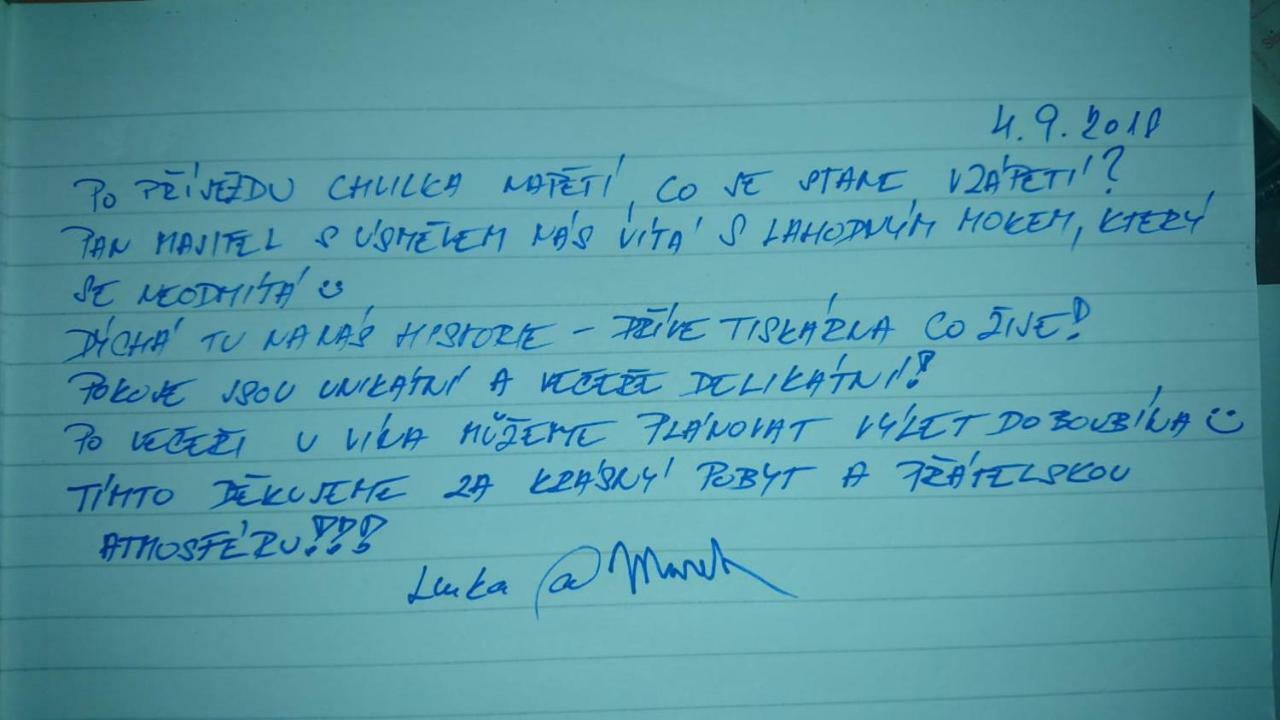 4.9.2018
PO PŘÍJEZDU CHVILKA NAPĚTÍ, CO SE STANE VZÁPĚTÍ?
PAN MAJITEL S ÚSMĚVEM NÁS VÍTÁ S LAHODNÝM MOKEM, KTERÝ
SE NEODMÍTÁ ☺
DÝCHÁ TU NA NÁS HISTORIE – DŘÍVE TISKÁRNA CO ŽIJE!
POKOJE JSOU UNIKÁTNÍ A VEČEŘE DELIKÁTNÍ!
PO VEČEŘI U VÍNA MŮŽEME PLÁNOVAT VÝLET DO BOUBÍNA ☺
TÍMTO DĚKUJEME ZA KRÁSNÝ POBYT A PŘÁTELSKOU
ATMOSFÉRU!!!
Lenka a Marek